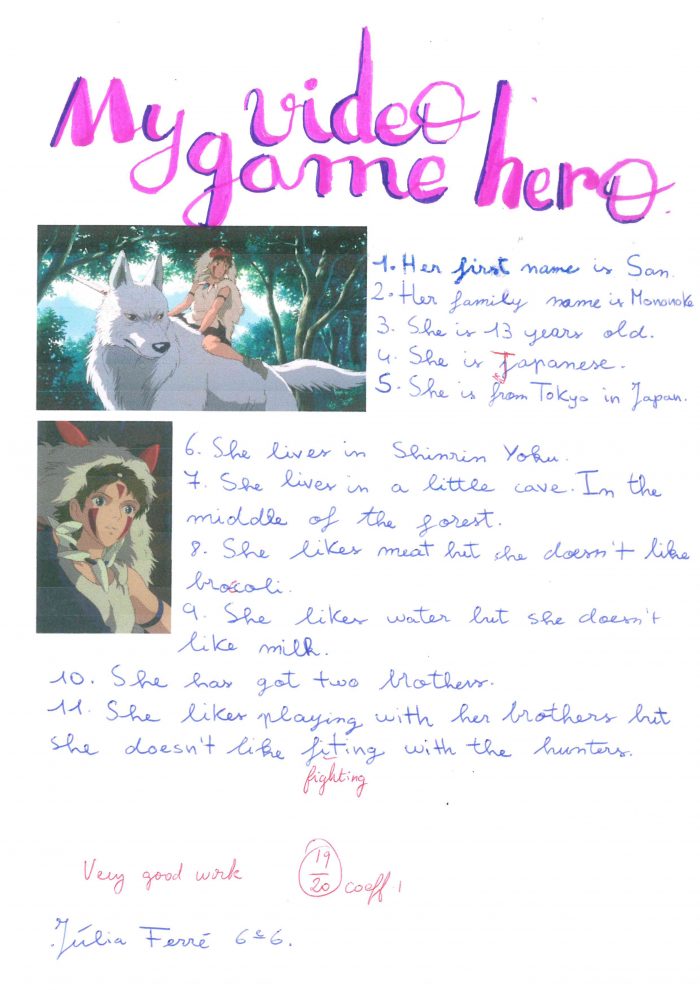 My video
game hero
1. Her first name is San.
2. Her family name is Mononoke
3. She is 13 years old.
4. She is Japanese.
5. She is from Tokyo in Japan.
6. She lives in Shinrin Yoku.
7. She lives in a little cave. In the
middle of the forest.
8. She likes meat but she doesn't like
brocoli.
9. She likes water but she doesn't
like milk.
10. She has got two brothers.
11. She likes playing with her brothers but
she doesn't like fiting with the hunters.
fighting
Very good work 19/20 coeff 1
Júlia Ferré 6e6.